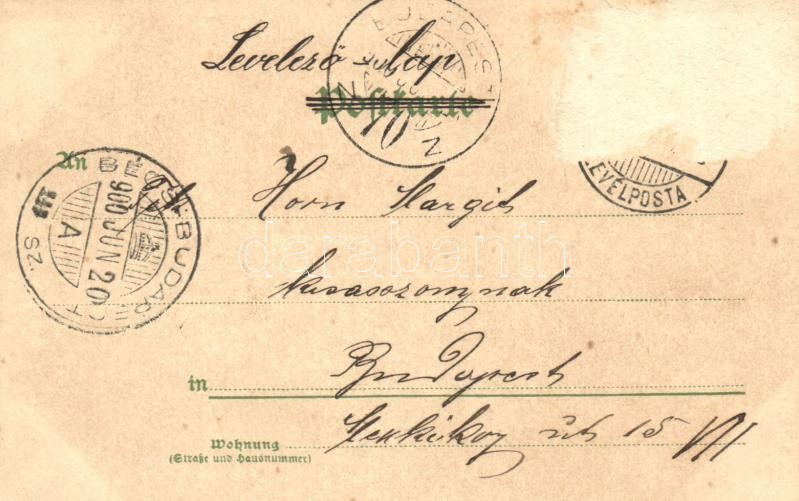 Levelező-Lap
Postkarte
BUDAPEST
70
N
An
BESS-BUDAPEST
900 JUN 20
A
SZ.
LEVELPOSTA
Horn Margit
darabanth
kisasszonynak
in Budapest
Wohnung
(Straße und Hausnummer)
út 15 VII